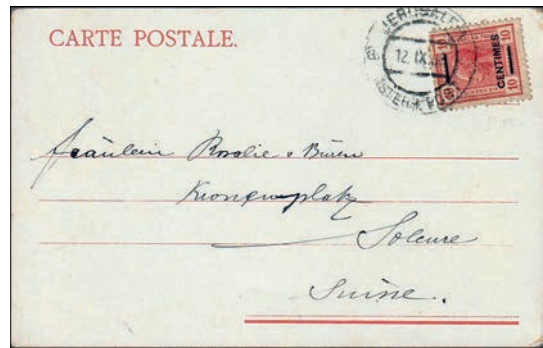 CARTE POSTALE.
JERUSALEM
12. IX.
10 CENTIMES 10
Fräulein Rosalie v. Büren
Kronenplatz
Soleure
Suisse.